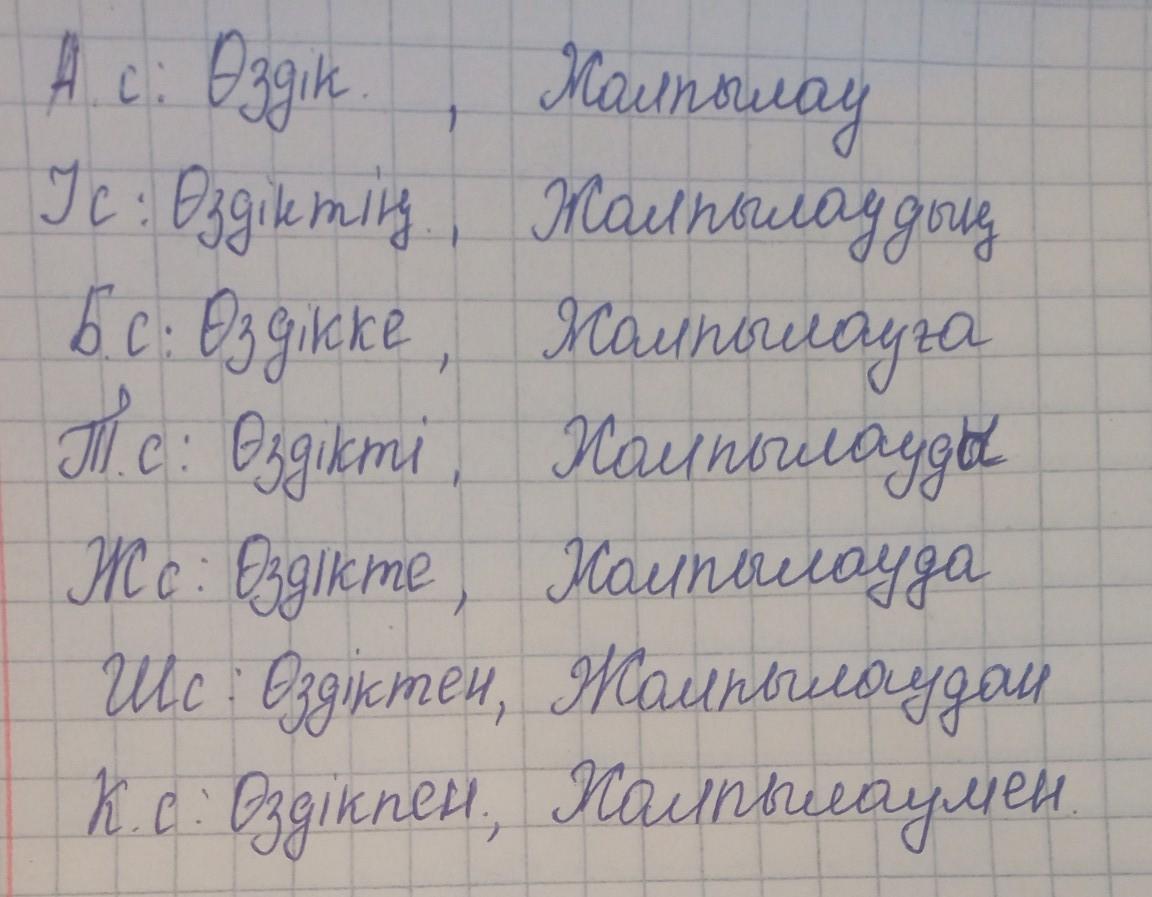 А.с: Өздік. , Жалпылау
Іс: Өздіктің., Жалпылаудың
Б.с: Өздікке, Жалпылауға
Т.с: Өздікті, Жалпылауды
Жс: Өздікте, Жалпылауда
Шс: Өздіктен, Жалпылаудан
К.с: Өздікпен., Жалпылаумен.